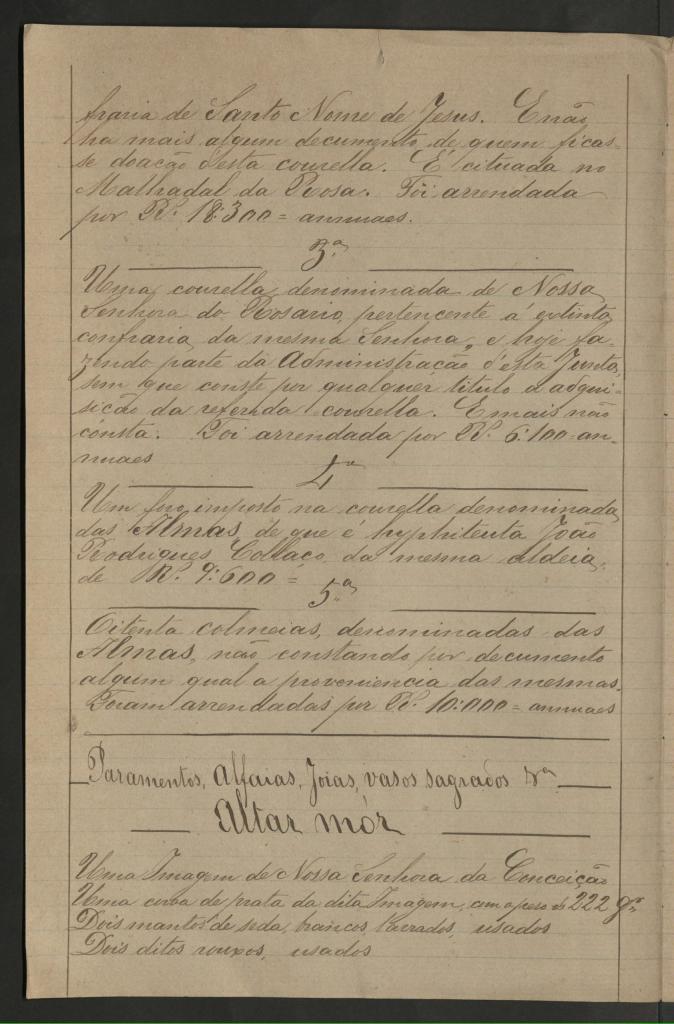 fraria de Santo Nome de Jesus. E não
ha mais algum documento de quem ficas-
se doação d'esta courella. É cituada no
Malhadal da Roosa. Foi arrendada
por R.s 18:300 = annuaes.
3.ª
Uma courella denominada de Nossa
Senhora do Rosario, pertencente á extinta
confraria da mesma Senhora, e hoje fa-
zendo parte da Administração d'esta Junta,
sem que conste por qualquer titulo a adqui-
sição da referida courella. E mais não
consta. Foi arrendada por R.s 6:100 = an-
nuaes
4.ª
Um foro imposto na courella denominada
das Almas, de que é hyphiteuta João
Rodrigues Collaço, da mesma aldeia,
de R.s 9:600 =
5.ª
Oitenta colmeias, denominadas das
Almas, não constando por documento
algum qual a proveniencia das mesmas.
Foram arrendadas por R.s 10:000 = annuaes
Paramentos, Alfaias, Joias, vasos sagrados &.ª
Altar mór
Uma Imagem de Nossa Senhora da Conceição
Uma coroa de prata da dita Imagem, com o peso de 222 gr.
Dois mantos de seda, brancos, lavrados, usados
Dois ditos rouxos, usados